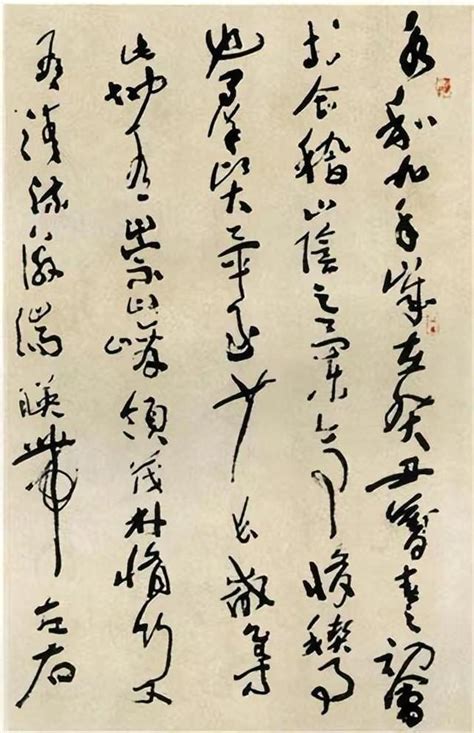 永和九年歲在癸丑暮春之初會
於會稽山陰之蘭亭脩禊事
也羣賢畢至少長咸集
此地有崇山峻領茂林脩竹又
有清流激湍映帶左右